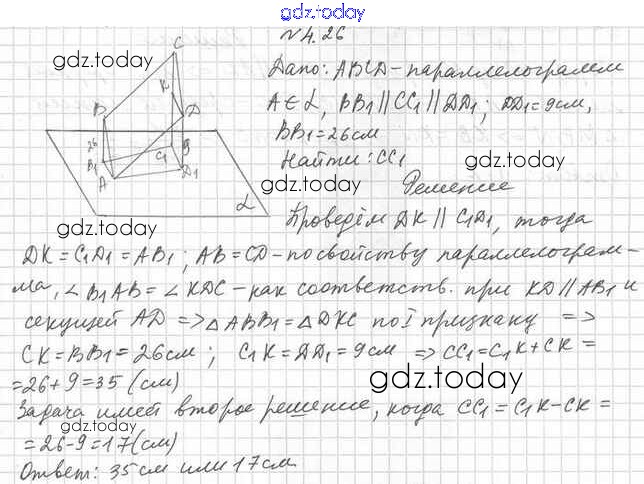 gdz.today
N 4.26
gdz.today
Дано: ABCD-параллелограмм
A∈α, BB₁||CC₁||DD₁; DD₁=9см,
BB₁=26см
Найти: CC₁
gdz.today
gdz.today
Решение
C
K
B
D
26
9
B₁
C₁
A
D₁
α
gdz.today
Проведём DK || C₁D₁, тогда
DK = C₁D₁ = AB₁; AB=CD-по свойству параллелограм-
ма, ∠B₁AB = ∠KDC - как соответств. при KD||AB₁ и
секущей AD => △ABB₁=△DKC по I признаку =>
CK=BB₁=26см; C₁K=DD₁=9см => CC₁=C₁K+CK=
=26+9=35 (см)
gdz.today
Задача имеет второе решение, когда CC₁=C₁K-CK=
gdz.today
=26-9=17(см)
Ответ: 35см или 17см.